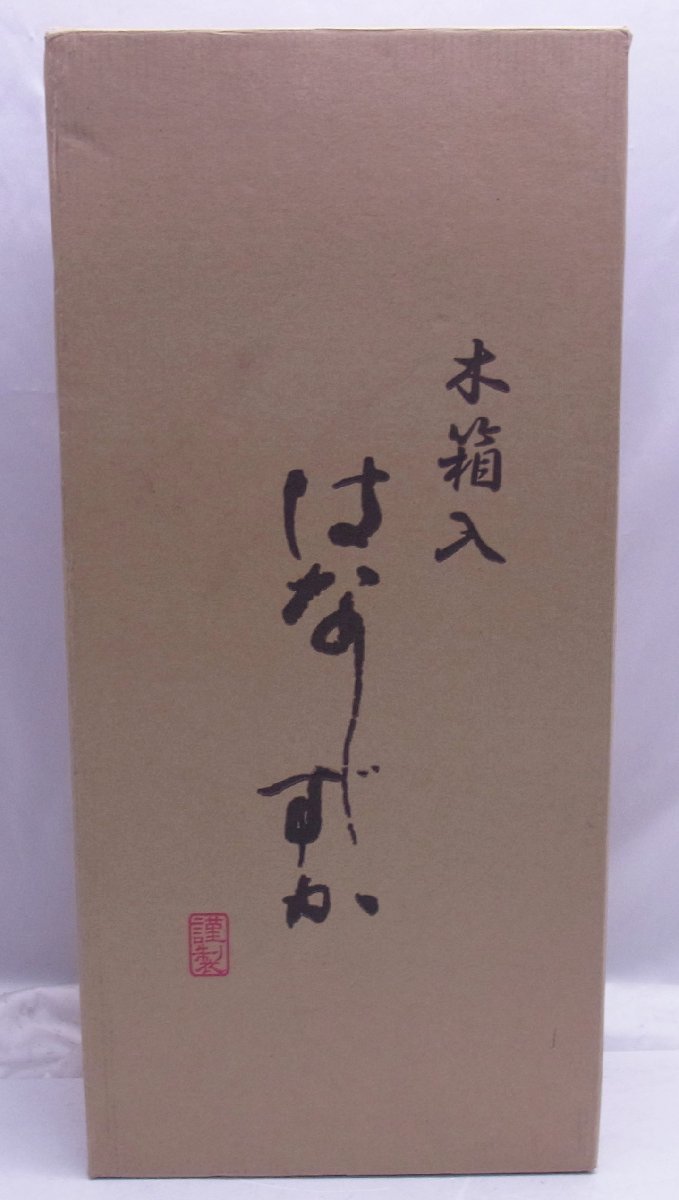 木箱入
はなしずか
謹製